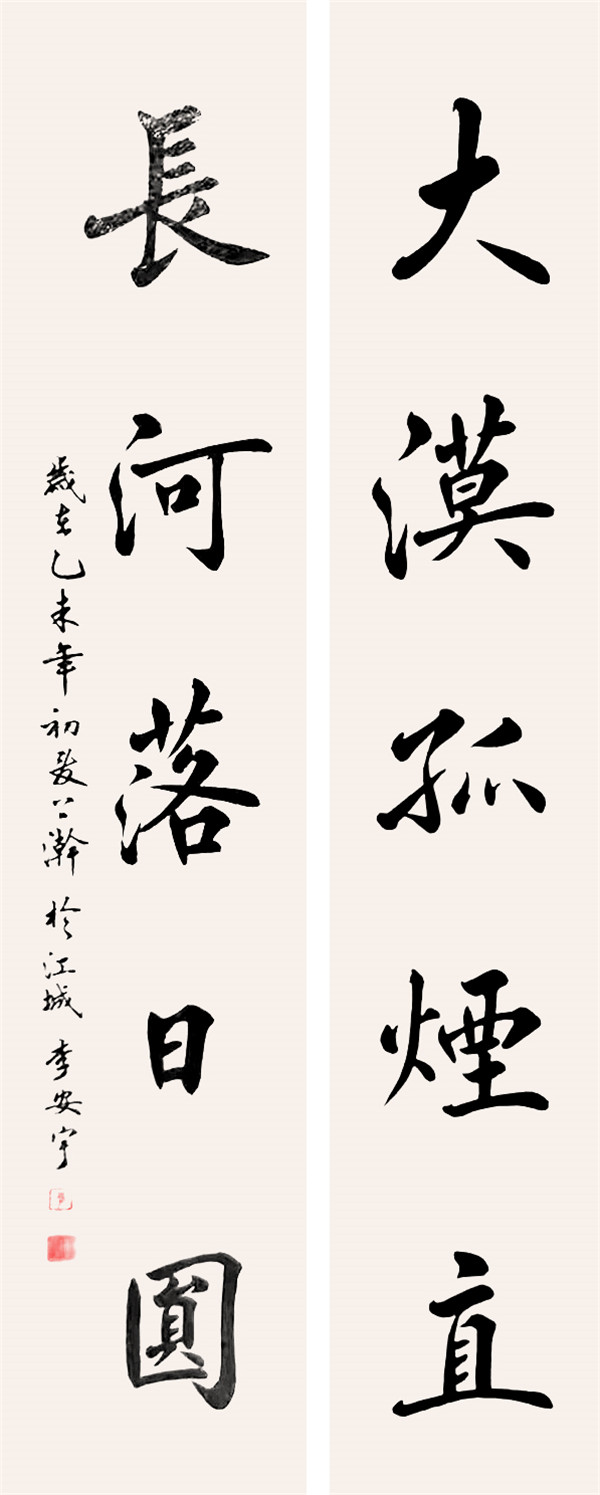 大漠孤煙直
長河落日圓
歲在乙未年初夏公瀚於江城李安宇